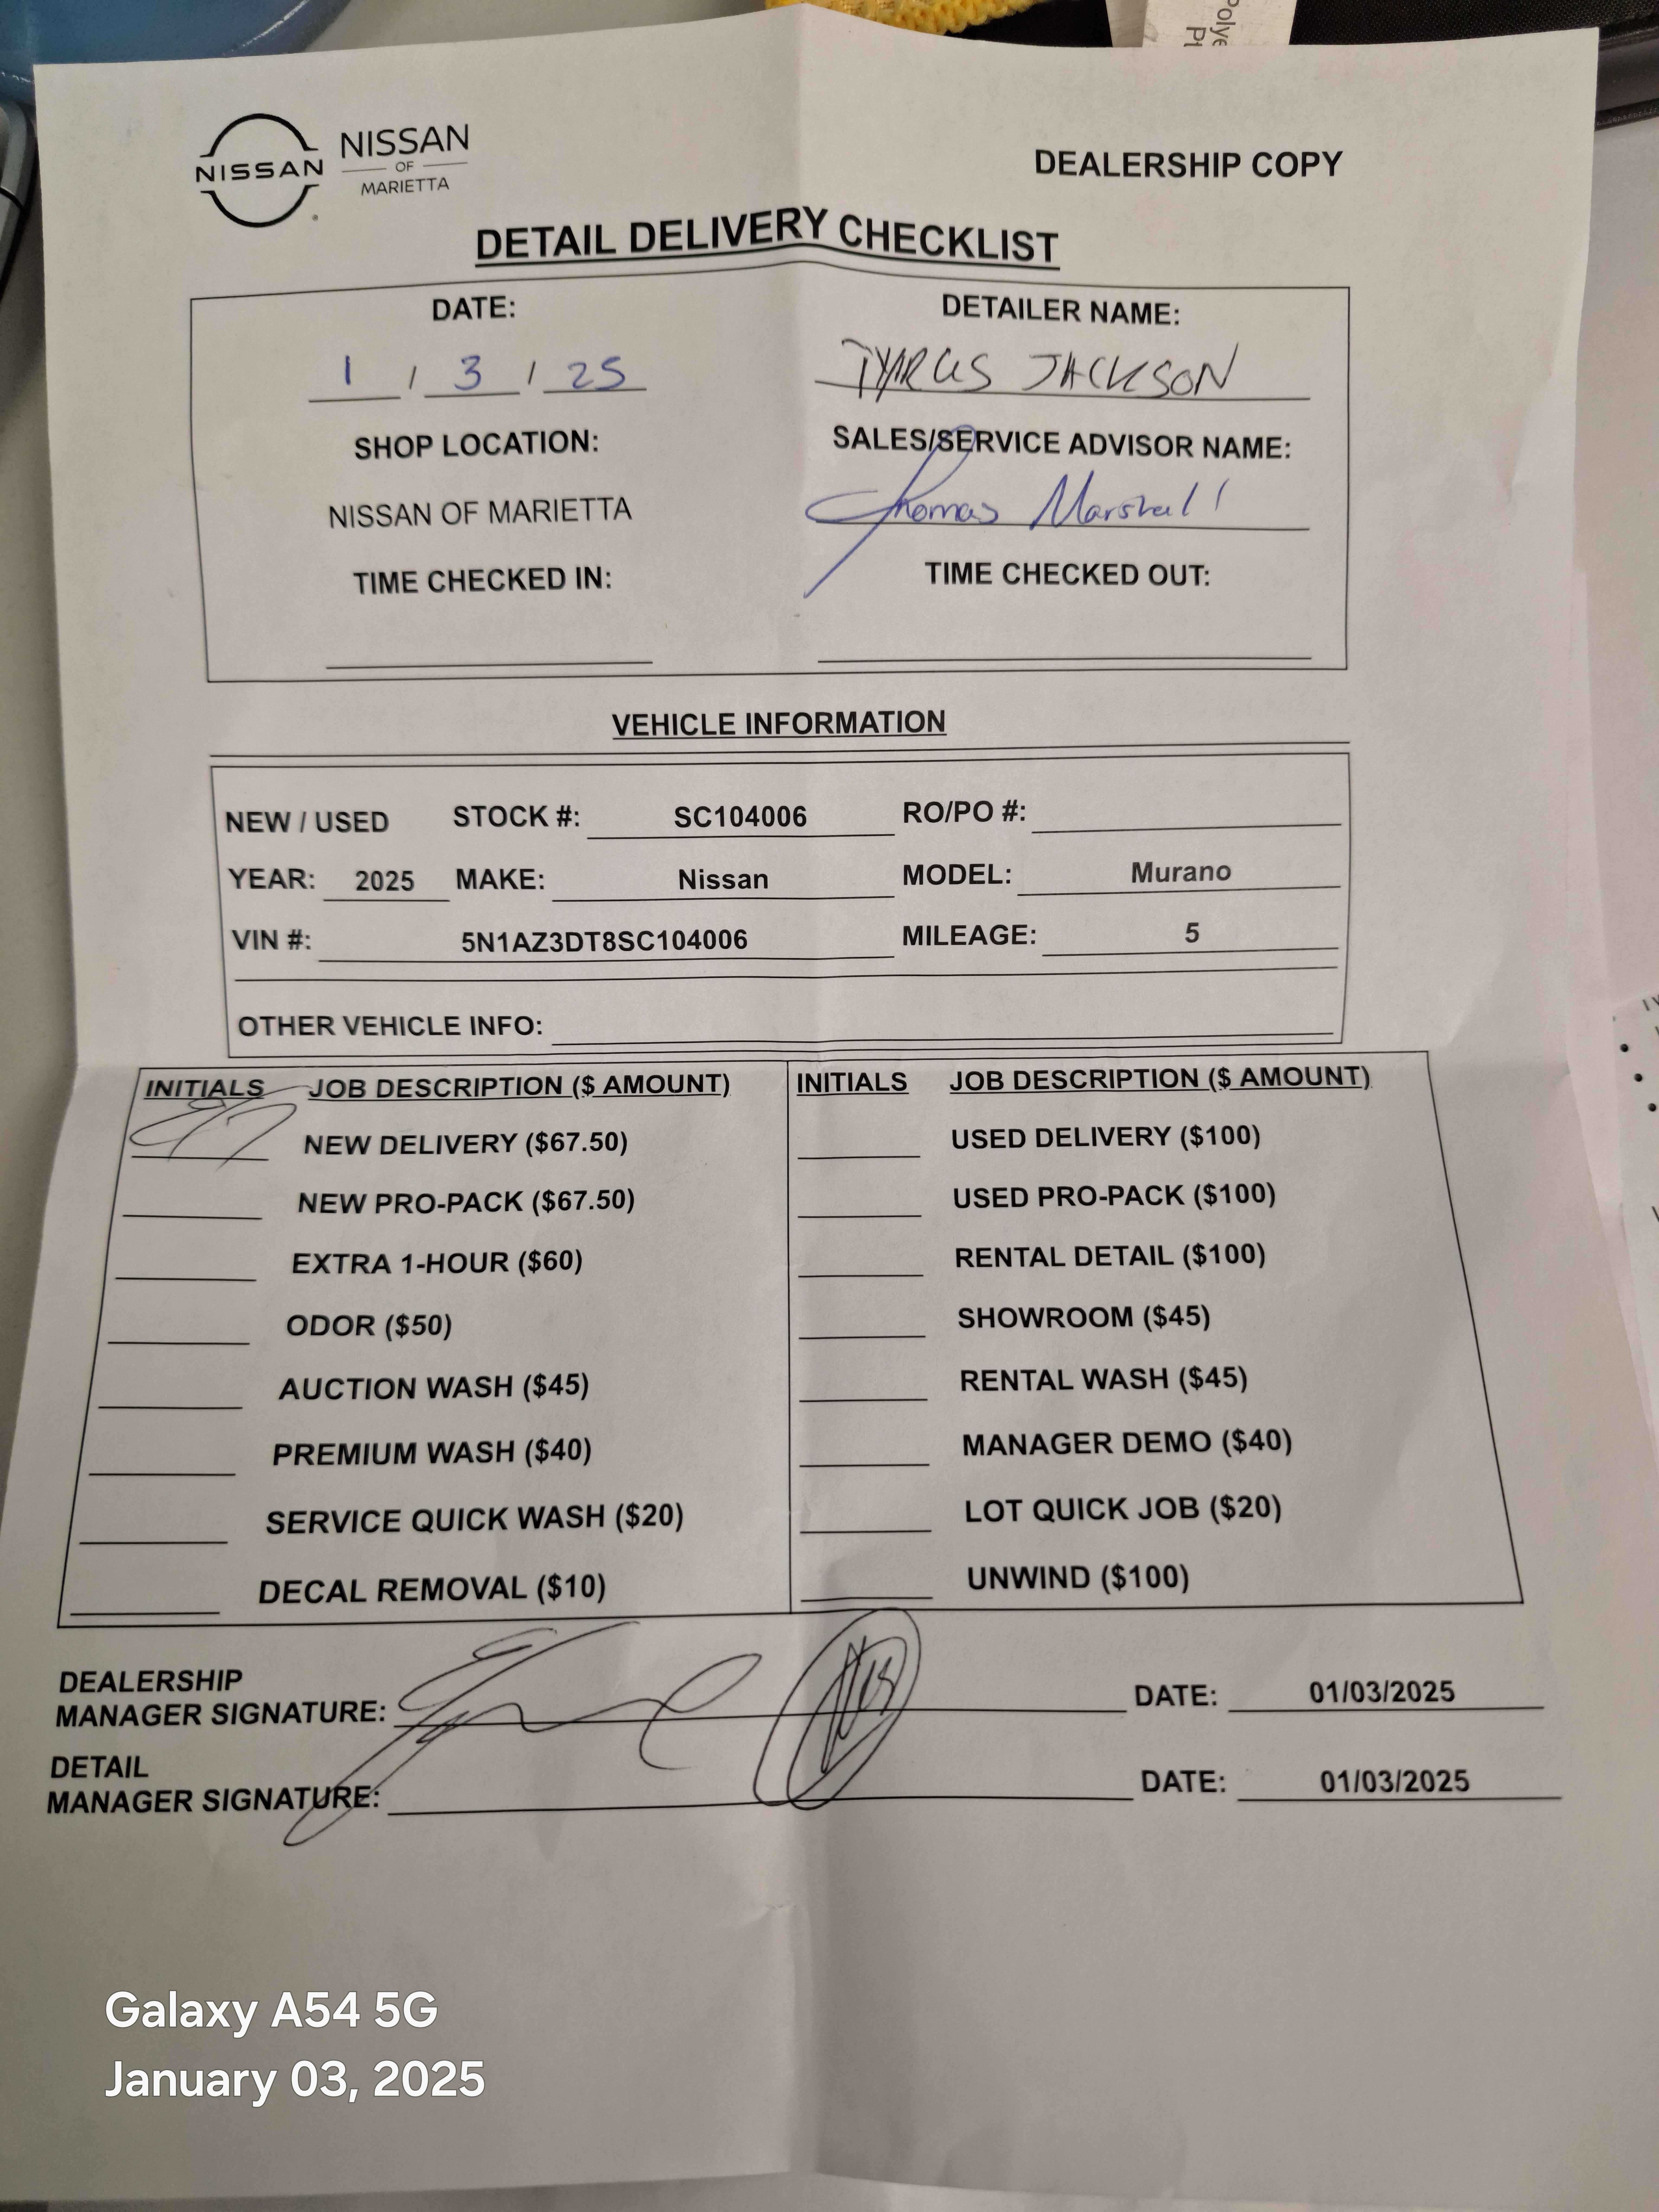 Polye
NISSAN
NISSAN
OF
MARIETTA
DEALERSHIP COPY
DETAIL DELIVERY CHECKLIST
DATE: DETAILER NAME:
1 / 3 / 25 TYRUS JACKSON
SHOP LOCATION: SALES/SERVICE ADVISOR NAME:
NISSAN OF MARIETTA Thomas Marshall
TIME CHECKED IN: TIME CHECKED OUT:
VEHICLE INFORMATION
NEW / USED STOCK #: SC104006 RO/PO #:
YEAR: 2025 MAKE: Nissan MODEL: Murano
VIN #: 5N1AZ3DT8SC104006 MILEAGE: 5
OTHER VEHICLE INFO:
INITIALS JOB DESCRIPTION ($ AMOUNT) INITIALS JOB DESCRIPTION ($ AMOUNT)
NEW DELIVERY ($67.50) USED DELIVERY ($100)
NEW PRO-PACK ($67.50) USED PRO-PACK ($100)
EXTRA 1-HOUR ($60) RENTAL DETAIL ($100)
ODOR ($50) SHOWROOM ($45)
AUCTION WASH ($45) RENTAL WASH ($45)
PREMIUM WASH ($40) MANAGER DEMO ($40)
SERVICE QUICK WASH ($20) LOT QUICK JOB ($20)
DECAL REMOVAL ($10) UNWIND ($100)
DEALERSHIP
MANAGER SIGNATURE: DATE: 01/03/2025
DETAIL
MANAGER SIGNATURE: DATE: 01/03/2025
Galaxy A54 5G
January 03, 2025